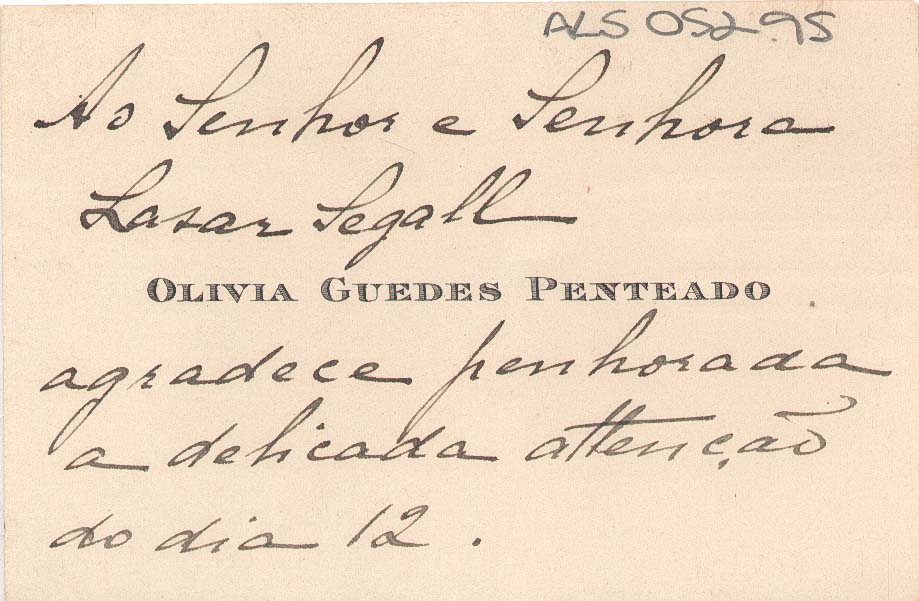 ALS 05295
Ao Senhor e Senhora
Lasar Segall
OLIVIA GUEDES PENTEADO
agradece penhorada
a delicada attenção
do dia 12.